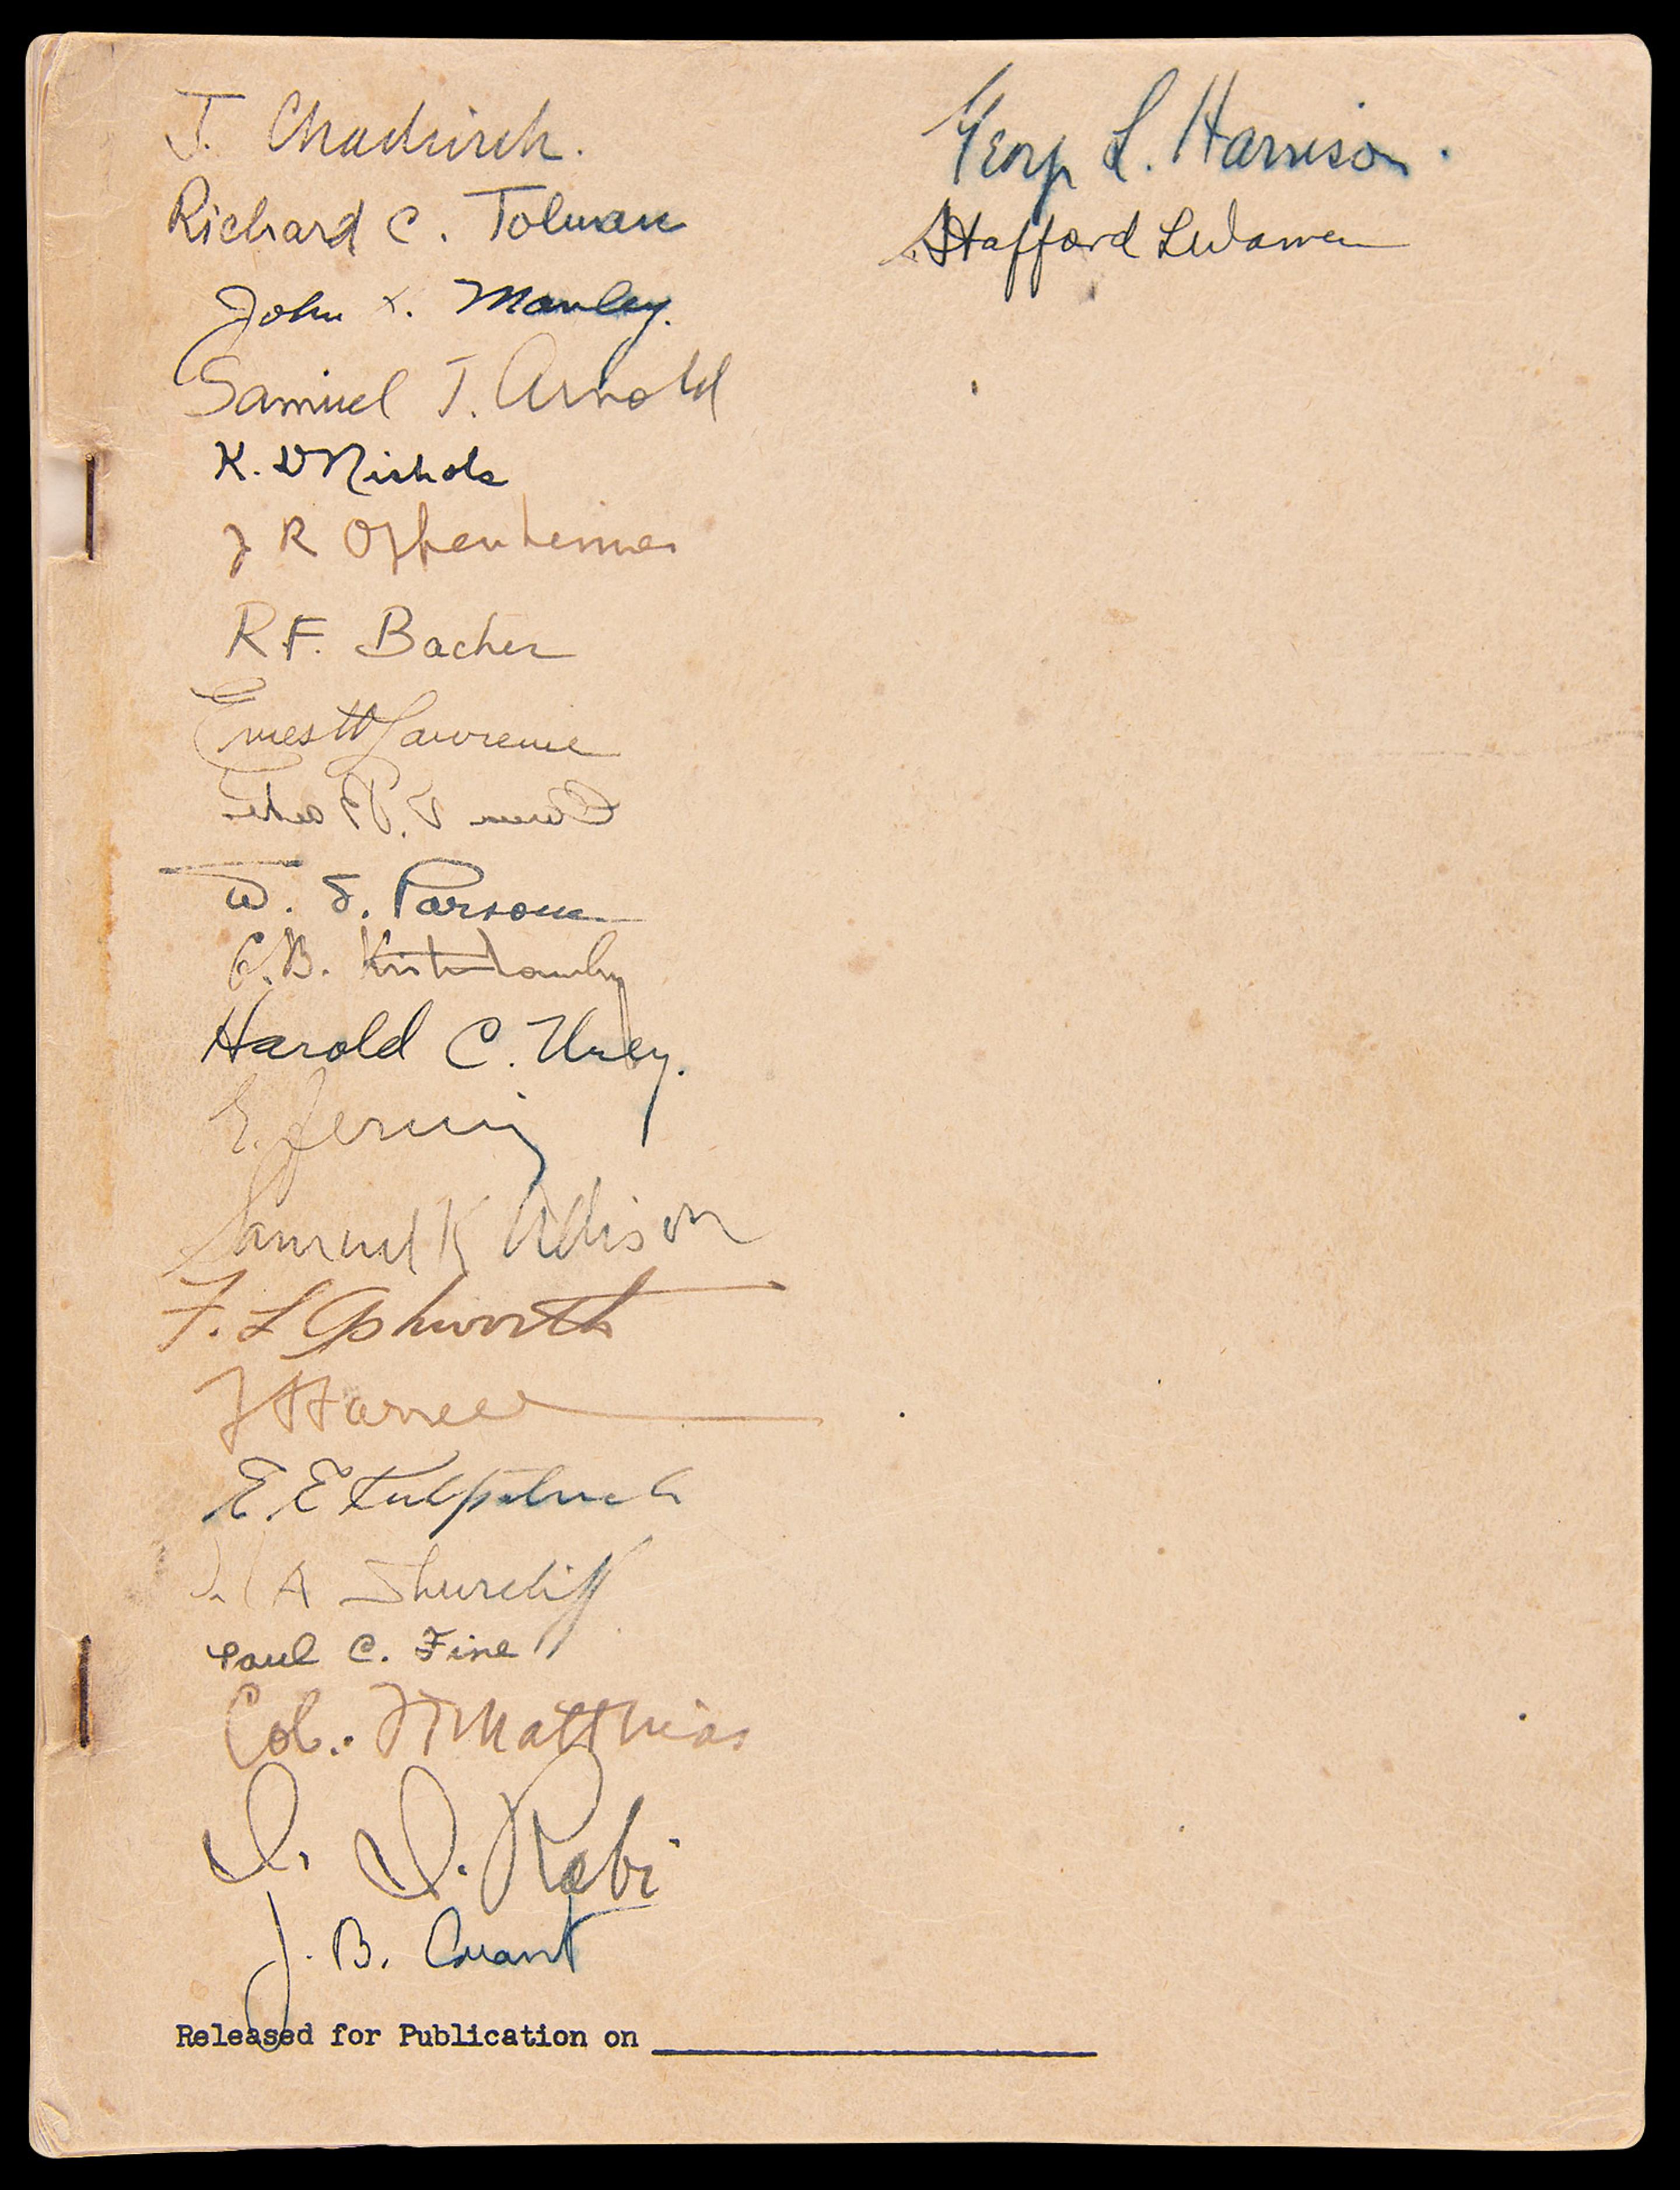 J. Chadwick.
Richard C. Tolman
John H. Manley.
Samuel T. Arnold
K. D Nichols
J R Oppenheimer
R.F. Bacher
Ernest O Lawrence
W. S. Parsons
G.B. Kistiakowsky
Harold C. Urey.
E. Fermi
Samuel K Allison
F. L Ashworth
T F Farrell
E. E Kirkpatrick
W A Shurcliff
Paul C. Fine
Col. F T Matthias
I. I. Rabi
J. B. Conant
Released for Publication on
George L. Harrison.
Stafford L Warren